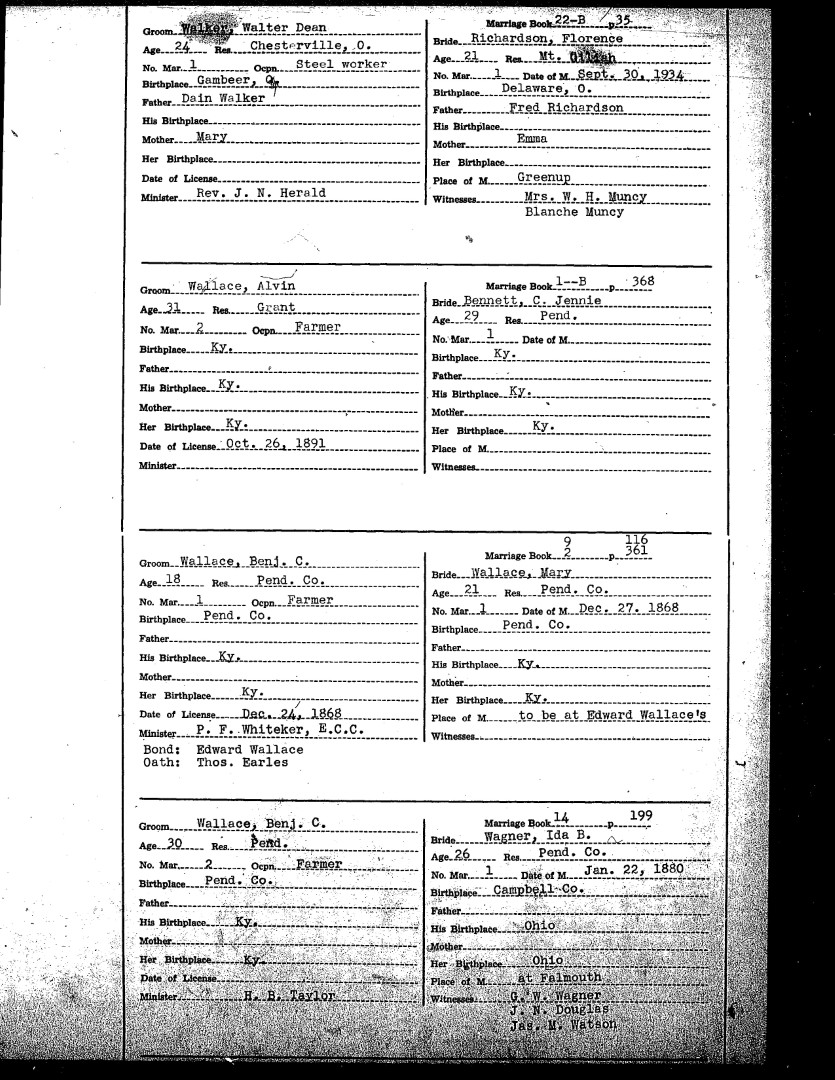 Groom Walker, Walter Dean
Age 24 Res. Chesterville, O.
No. Mar. 1 Ocpn. Steel worker
Birthplace Gambeer, O.
Father Dain Walker
His Birthplace
Mother Mary
Her Birthplace
Date of License
Minister Rev. J. N. Herald
Marriage Book 22-B p 35
Bride Richardson, Florence
Age 21 Res. Mt. Gilead
No. Mar. 1 Date of M. Sept. 30, 1934
Birthplace Delaware, O.
Father Fred Richardson
His Birthplace
Mother Emma
Her Birthplace
Place of M. Greenup
Witnesses Mrs. W. H. Muncy
Blanche Muncy
Groom Wallace, Alvin
Age 31 Res. Grant
No. Mar. 2 Ocpn. Farmer
Birthplace Ky.
Father
His Birthplace Ky.
Mother
Her Birthplace Ky.
Date of License Oct. 26, 1891
Minister
Marriage Book 1--B p 368
Bride Bennett, C. Jennie
Age 29 Res. Pend.
No. Mar. 1 Date of M.
Birthplace Ky.
Father
His Birthplace Ky.
Mother
Her Birthplace Ky.
Place of M.
Witnesses
Groom Wallace, Benj. C.
Age 18 Res. Pend. Co.
No. Mar. 1 Ocpn. Farmer
Birthplace Pend. Co.
Father
His Birthplace Ky.
Mother
Her Birthplace Ky.
Date of License Dec. 24, 1868
Minister P. F. Whiteker, E.C.C.
Bond: Edward Wallace
Oath: Thos. Earles
9 116
Marriage Book 2 p 361
Bride Wallace, Mary
Age 21 Res. Pend. Co.
No. Mar. 1 Date of M. Dec. 27. 1868
Birthplace Pend. Co.
Father
His Birthplace Ky.
Mother
Her Birthplace Ky.
Place of M. to be at Edward Wallace's
Witnesses
Groom Wallace, Benj. C.
Age 30 Res. Pend.
No. Mar. 2 Ocpn. Farmer
Birthplace Pend. Co.
Father
His Birthplace Ky.
Mother
Her Birthplace Ky.
Date of License
Minister H. B. Taylor
Marriage Book 14 p 199
Bride Wagner, Ida B.
Age 26 Res. Pend. Co.
No. Mar. 1 Date of M. Jan. 22, 1880
Birthplace Campbell Co.
Father
His Birthplace Ohio
Mother
Her Birthplace Ohio
Place of M. at Falmouth
Witnesses G. W. Wagner
J. N. Douglas
Jas. M. Watson